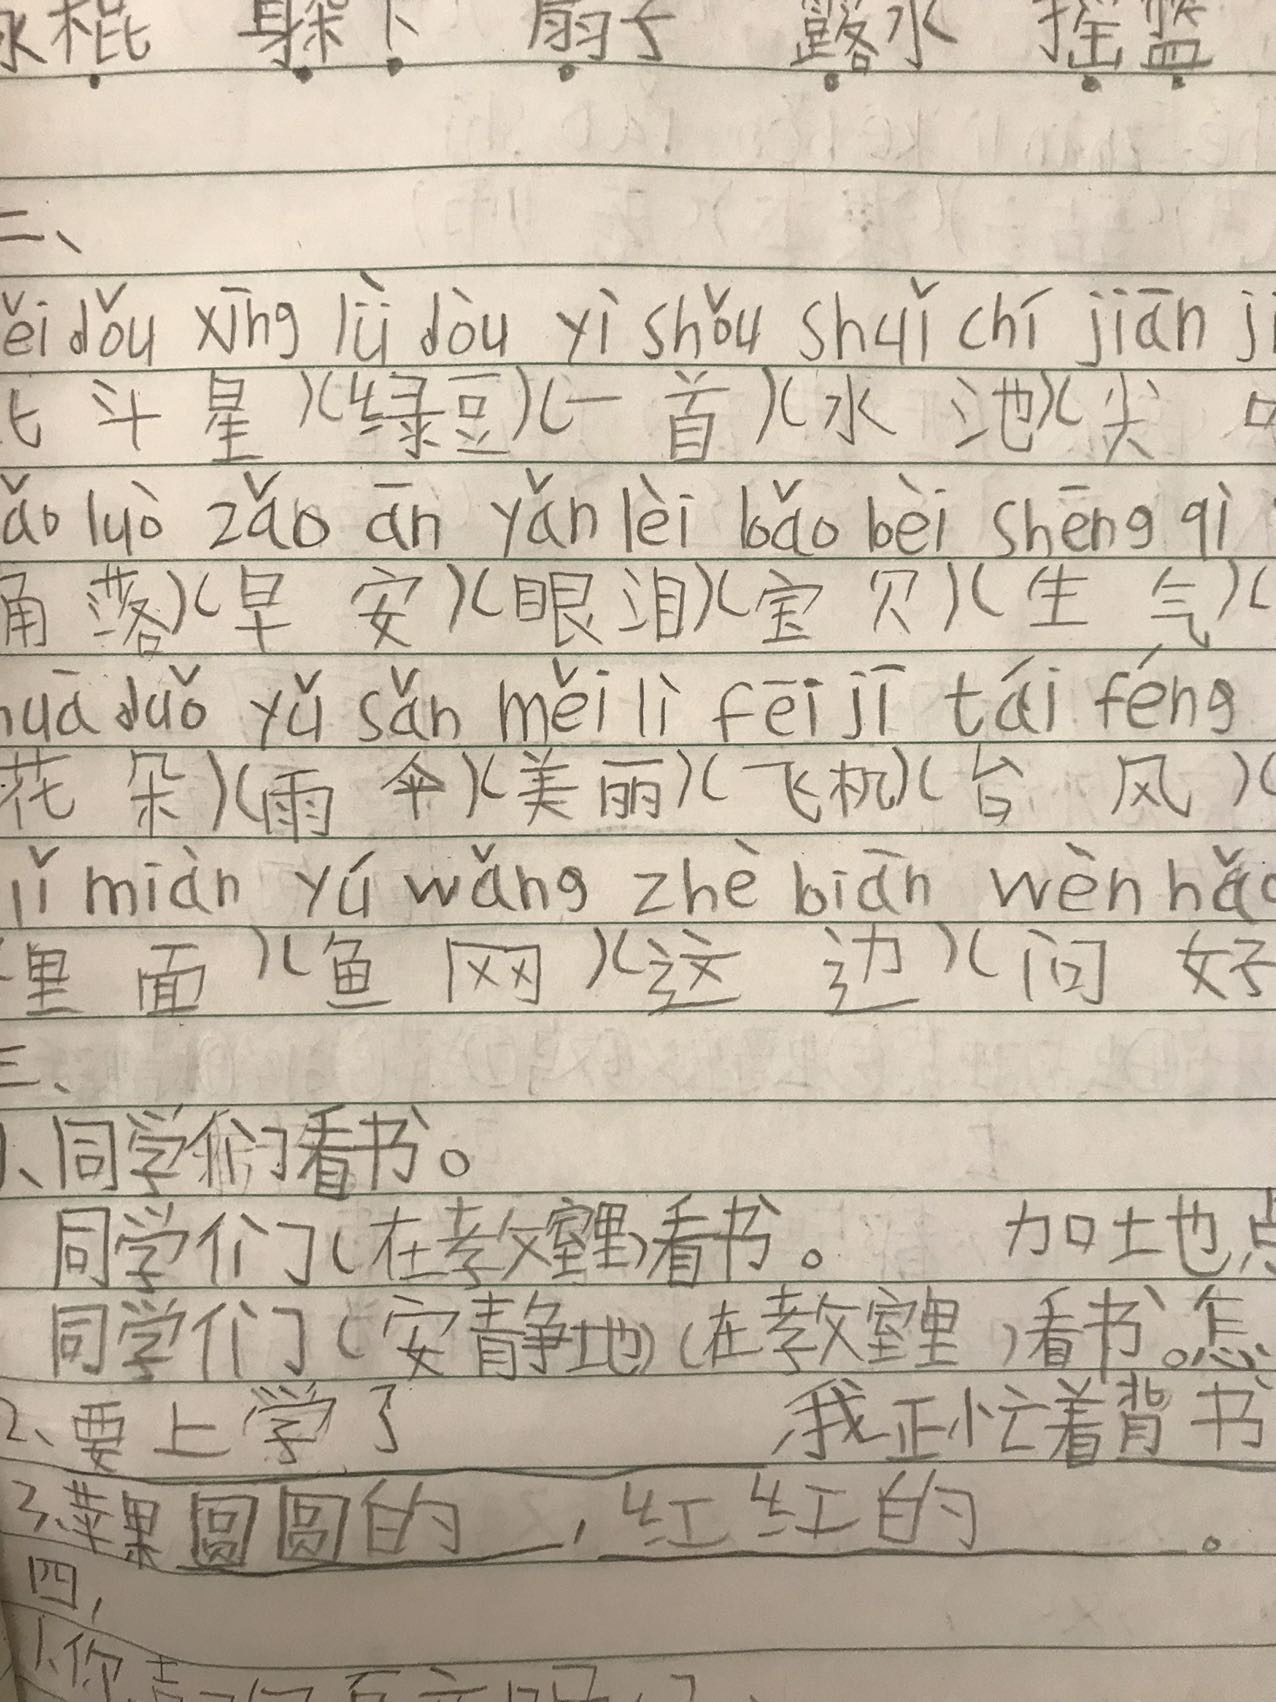 棍 躲下 扇子 露水 摇篮
二、
ěi dǒu xīng lǜ dòu yì shǒu shuǐ chí jiān
斗 星)(绿豆)(一 首)(水 池)(尖
ǎo luò zǎo ān yǎn lèi bǎo bèi shēng qì
角 落)(早 安)(眼泪)(宝 贝)(生 气)(
huā duǒ yǔ sǎn měi lì fēi jī tái féng
花 朵)(雨 伞)(美 丽)(飞机)(台 风)(
lǐ miàn yú wǎng zhè biān wèn hǎo
里 面)(鱼 网)(这 边)(问 好
三、
1、同学们看书。
同学们(在教室里)看书。 加土也点
同学们(安静地)(在教室里)看书。怎
2、要上学了 ,我正忙着背书
3、苹果圆圆的,红红的。
四,
1、你